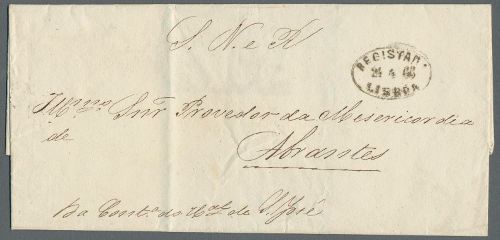 S. N. e R
REGISTAD.
24 4 63
LISBOA
Illmo Snr Provedor da Misericordia
de
Abrantes
Da Conta. do Hal. de S. José